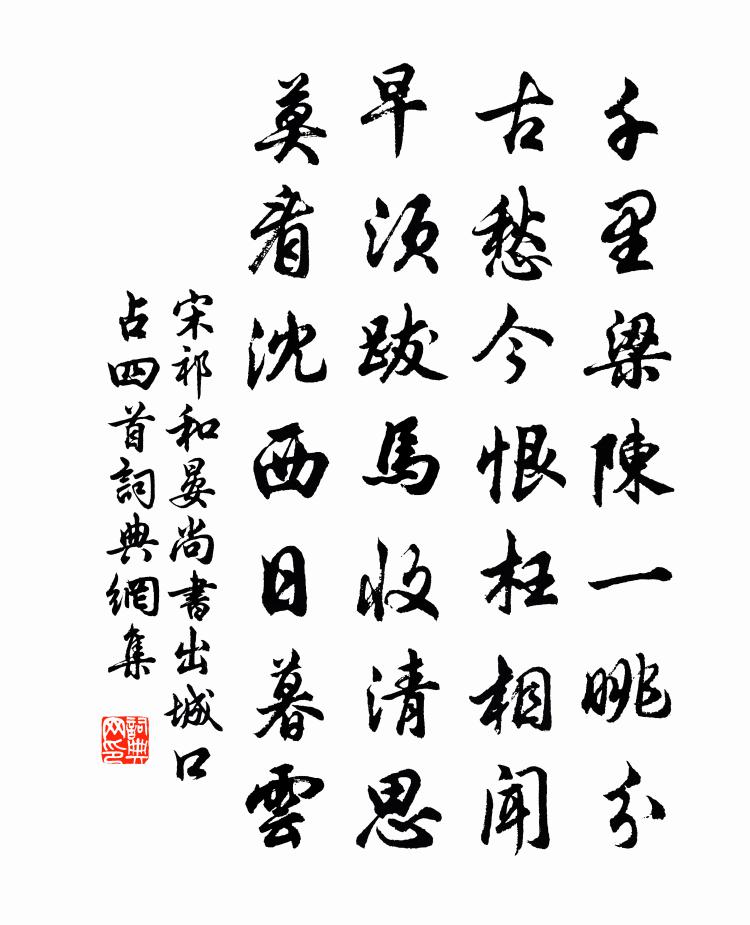 千里梁陳一眺分
古愁今恨枉相聞
早須跋馬收清思
莫看沈西日暮雲
宋祁和晏尚書出城口
占四首詞典網集
詞典
网印